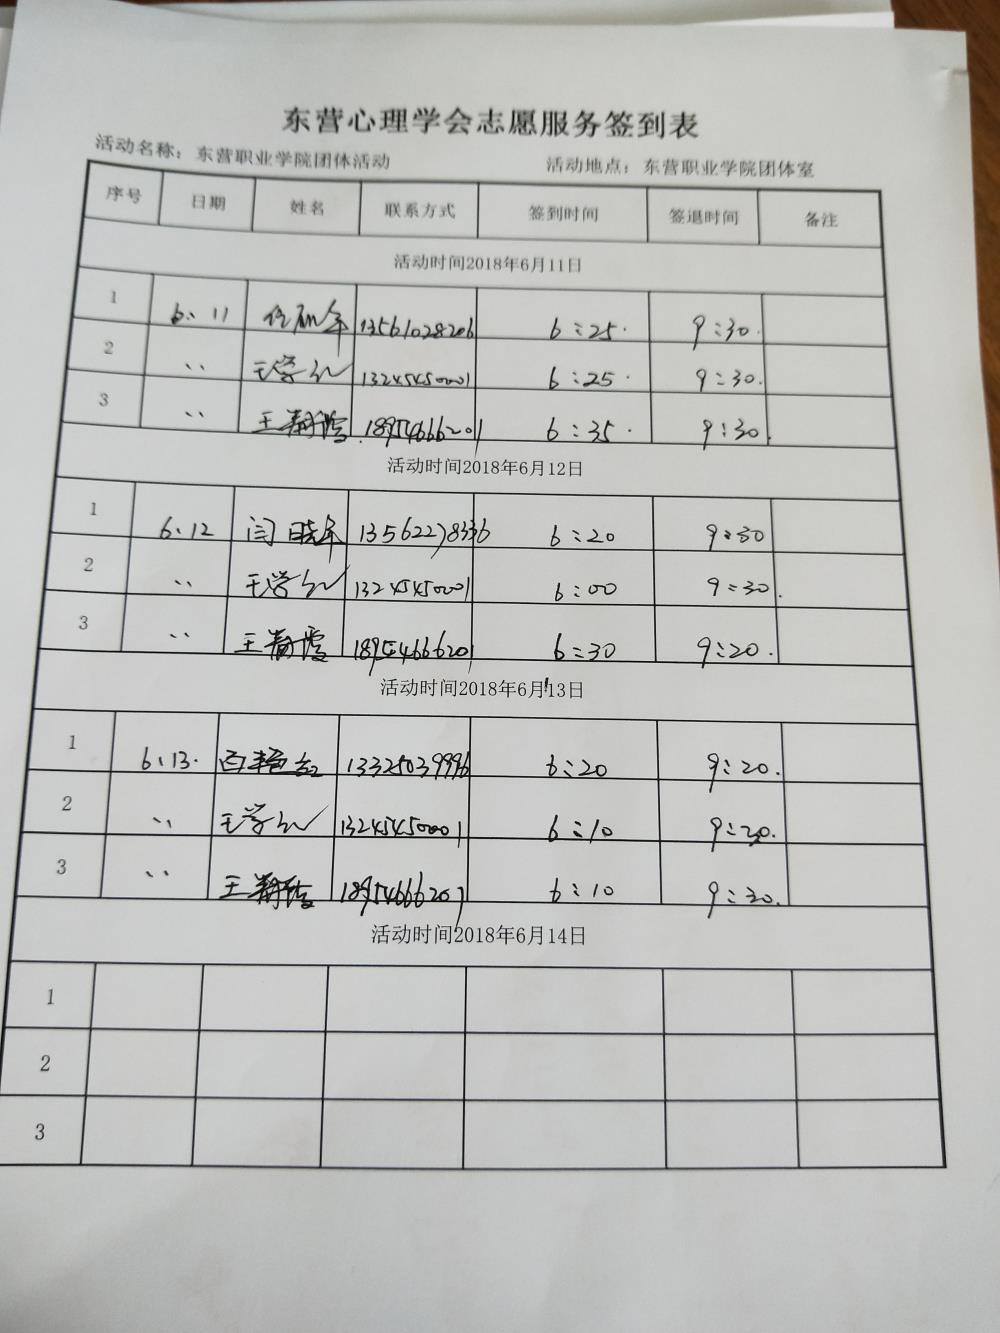 东营心理学会志愿服务签到表
活动名称：东营职业学院团体活动 活动地点：东营职业学院团体室
序号 日期 姓名 联系方式 签到时间 签退时间 备注
活动时间2018年6月11日
1 6、11 13561028206 6:25. 9:30.
2 、、 王学 13245450001 6:25. 9:30.
3 、、 王 18954666201 6:35. 9:30.
活动时间2018年6月12日
1 6、12 闫晓 13562278336 6:20 9:30
2 、、 王学 13245450001 6:00 9:30.
3 、、 王 霞 18954666201 6:30 9:20.
活动时间2018年6月13日
1 6、13. 百艳红 13325039996 6:20 9:20.
2 、、 王学 13245450001 6:10 9:30.
3 、、 王 18954666201 6:10 9:30.
活动时间2018年6月14日
1
2
3